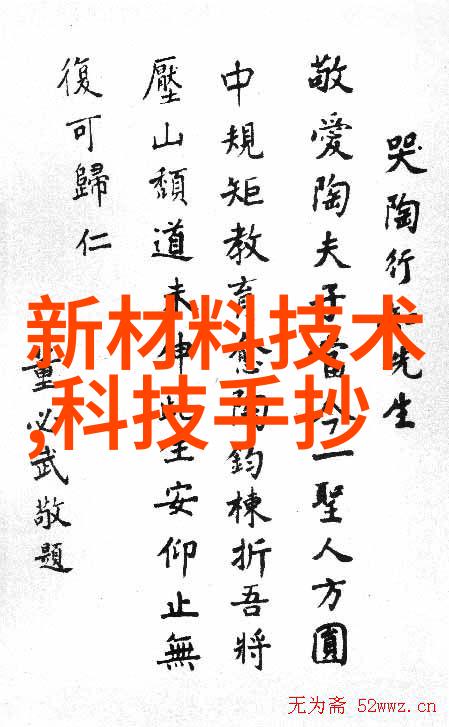 哭陶行知先生
敬愛陶夫子當今一聖人方圓
中規矩教育愈陶鈞棟折吾將
壓山頹道未伸此生安仰止無
復可歸仁
董必武敬題
新材料技术
,科技手抄
无为斋 52wwz.cn